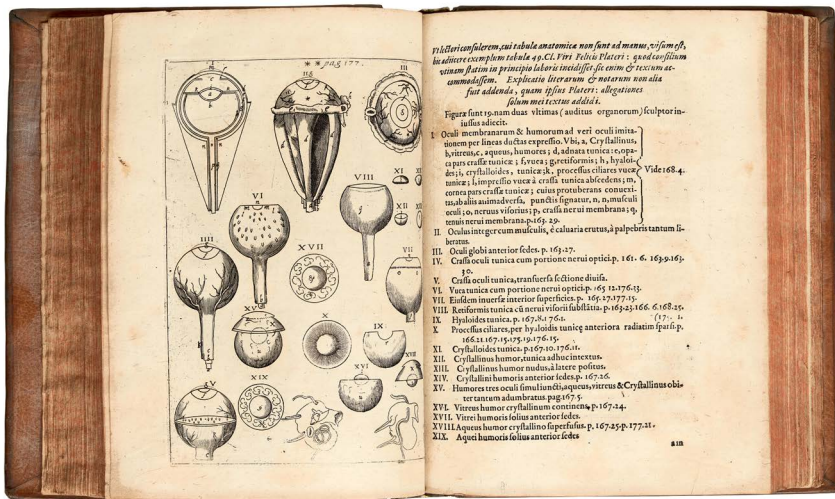 * * pag 177.
I
II
III
XI
XII
VIII
VI
XVII
IIII
VII
XV
X
IX
XVIII
XVI
V
XIX
Vt lectori consulerem, cui tabulæ anatomicæ non sunt ad manus, visum est,
hic adiicere exemplum tabulæ 49. Cl. Viri Felicis Plateri: quod consilium
vtinam statim in principio laboris incidisset, sic enim & textum ac-
commodassem. Explicatio literarum & notarum non alia
fuit addenda, quam ipsius Plateri: allegationes
solum mei textus addidi.
Figuræ sunt 19. nam duas vltimas (auditus organorum) sculptor in-
iussus adiecit.
I. Oculi membranarum & humorum ad veri oculi imita-
tionem per lineas ductas expressio. Vbi, a, Crystallinus,
b, vitreus, c, aqueus, humores; d, adnata tunica: e, opa-
ca pars crassæ tunicæ; f, vuea; g, retiformis; h, hyaloi-
des; i, crystalloides, tunicæ; k, processus ciliares vueæ
tunicæ; l, impressio vueæ à crassa tunica abscedens; m,
cornea pars crassæ tunicæ; cuius protuberans conuexi-
tas, ab aliis animadversa, punctis signatur, n, n, musculi
oculi; o, neruus visorius; p, crassa nerui membrana; q,
tenuis nerui membrana. p. 163. 29.
Vide 168. 4.
II. Oculus integer cum musculis, è caluaria erutus, à palpebris tantum li-
beratus.
III. Oculi globi anterior sedes. p. 163. 27.
IV. Crassa oculi tunica cum portione nerui optici. p. 161. 6. 163. 9. 163.
30.
V. Crassa oculi tunica, transuersa sectione diuisa.
VI. Vuea tunica cum portione nerui optici. p. 165 12. 176. 13.
VII. Eiusdem inuersæ interior superficies. p. 165. 27. 177. 15.
VIII. Retiformis tunica cũ nerui visorii substãtia. p. 163. 23. 166. 6. 168. 25.
IX. Hyaloides tunica. p. 167. 8. 176. 1.
X. Processus ciliares, per hyaloidis tunicę anteriora radiatim sparsi. p.
166. 21. 167. 15. 175. 19. 176. 15.
XI. Crystalloides tunica. p. 167. 10. 176. 11.
XII. Crystallinus humor, tunica adhuc intextus.
XIII. Crystallinus humor nudus, à latere positus.
XIV. Crystallini humoris anterior sedes. p. 167. 26.
XV. Humores tres oculi simul iuncti, aqueus, vitreus & Crystallinus obi-
ter tantum adumbratus. pag. 167. 5.
XVI. Vitreus humor crystallinum continens. p. 167. 24.
XVII. Vitrei humoris solius anterior sedes.
XVIII. Aqueus humor crystallino superfusus. p. 167. 25. p. 177. 21.
XIX. Aquei humoris solius anterior sedes